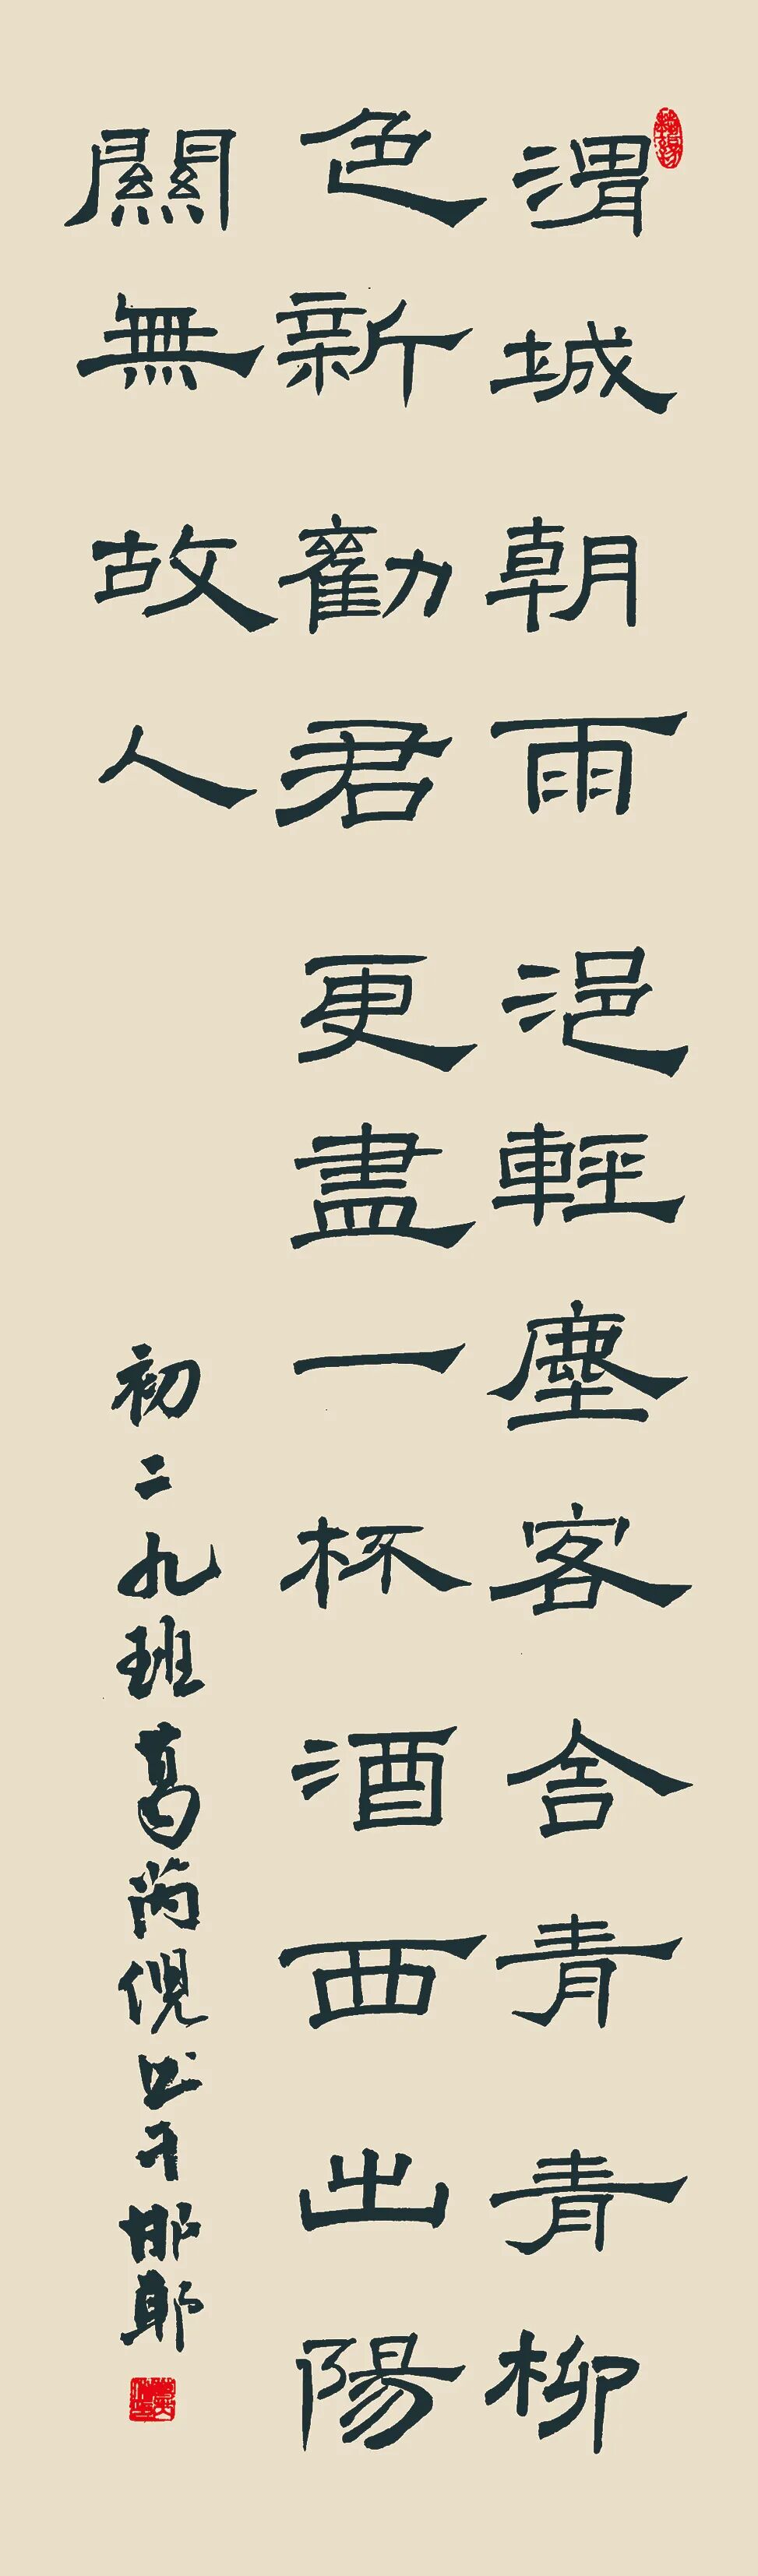 渭城朝雨浥輕塵客舍青青柳
色新勸君更盡一杯酒西出陽
關無故人
初二九班葛芮倪书于邯郸